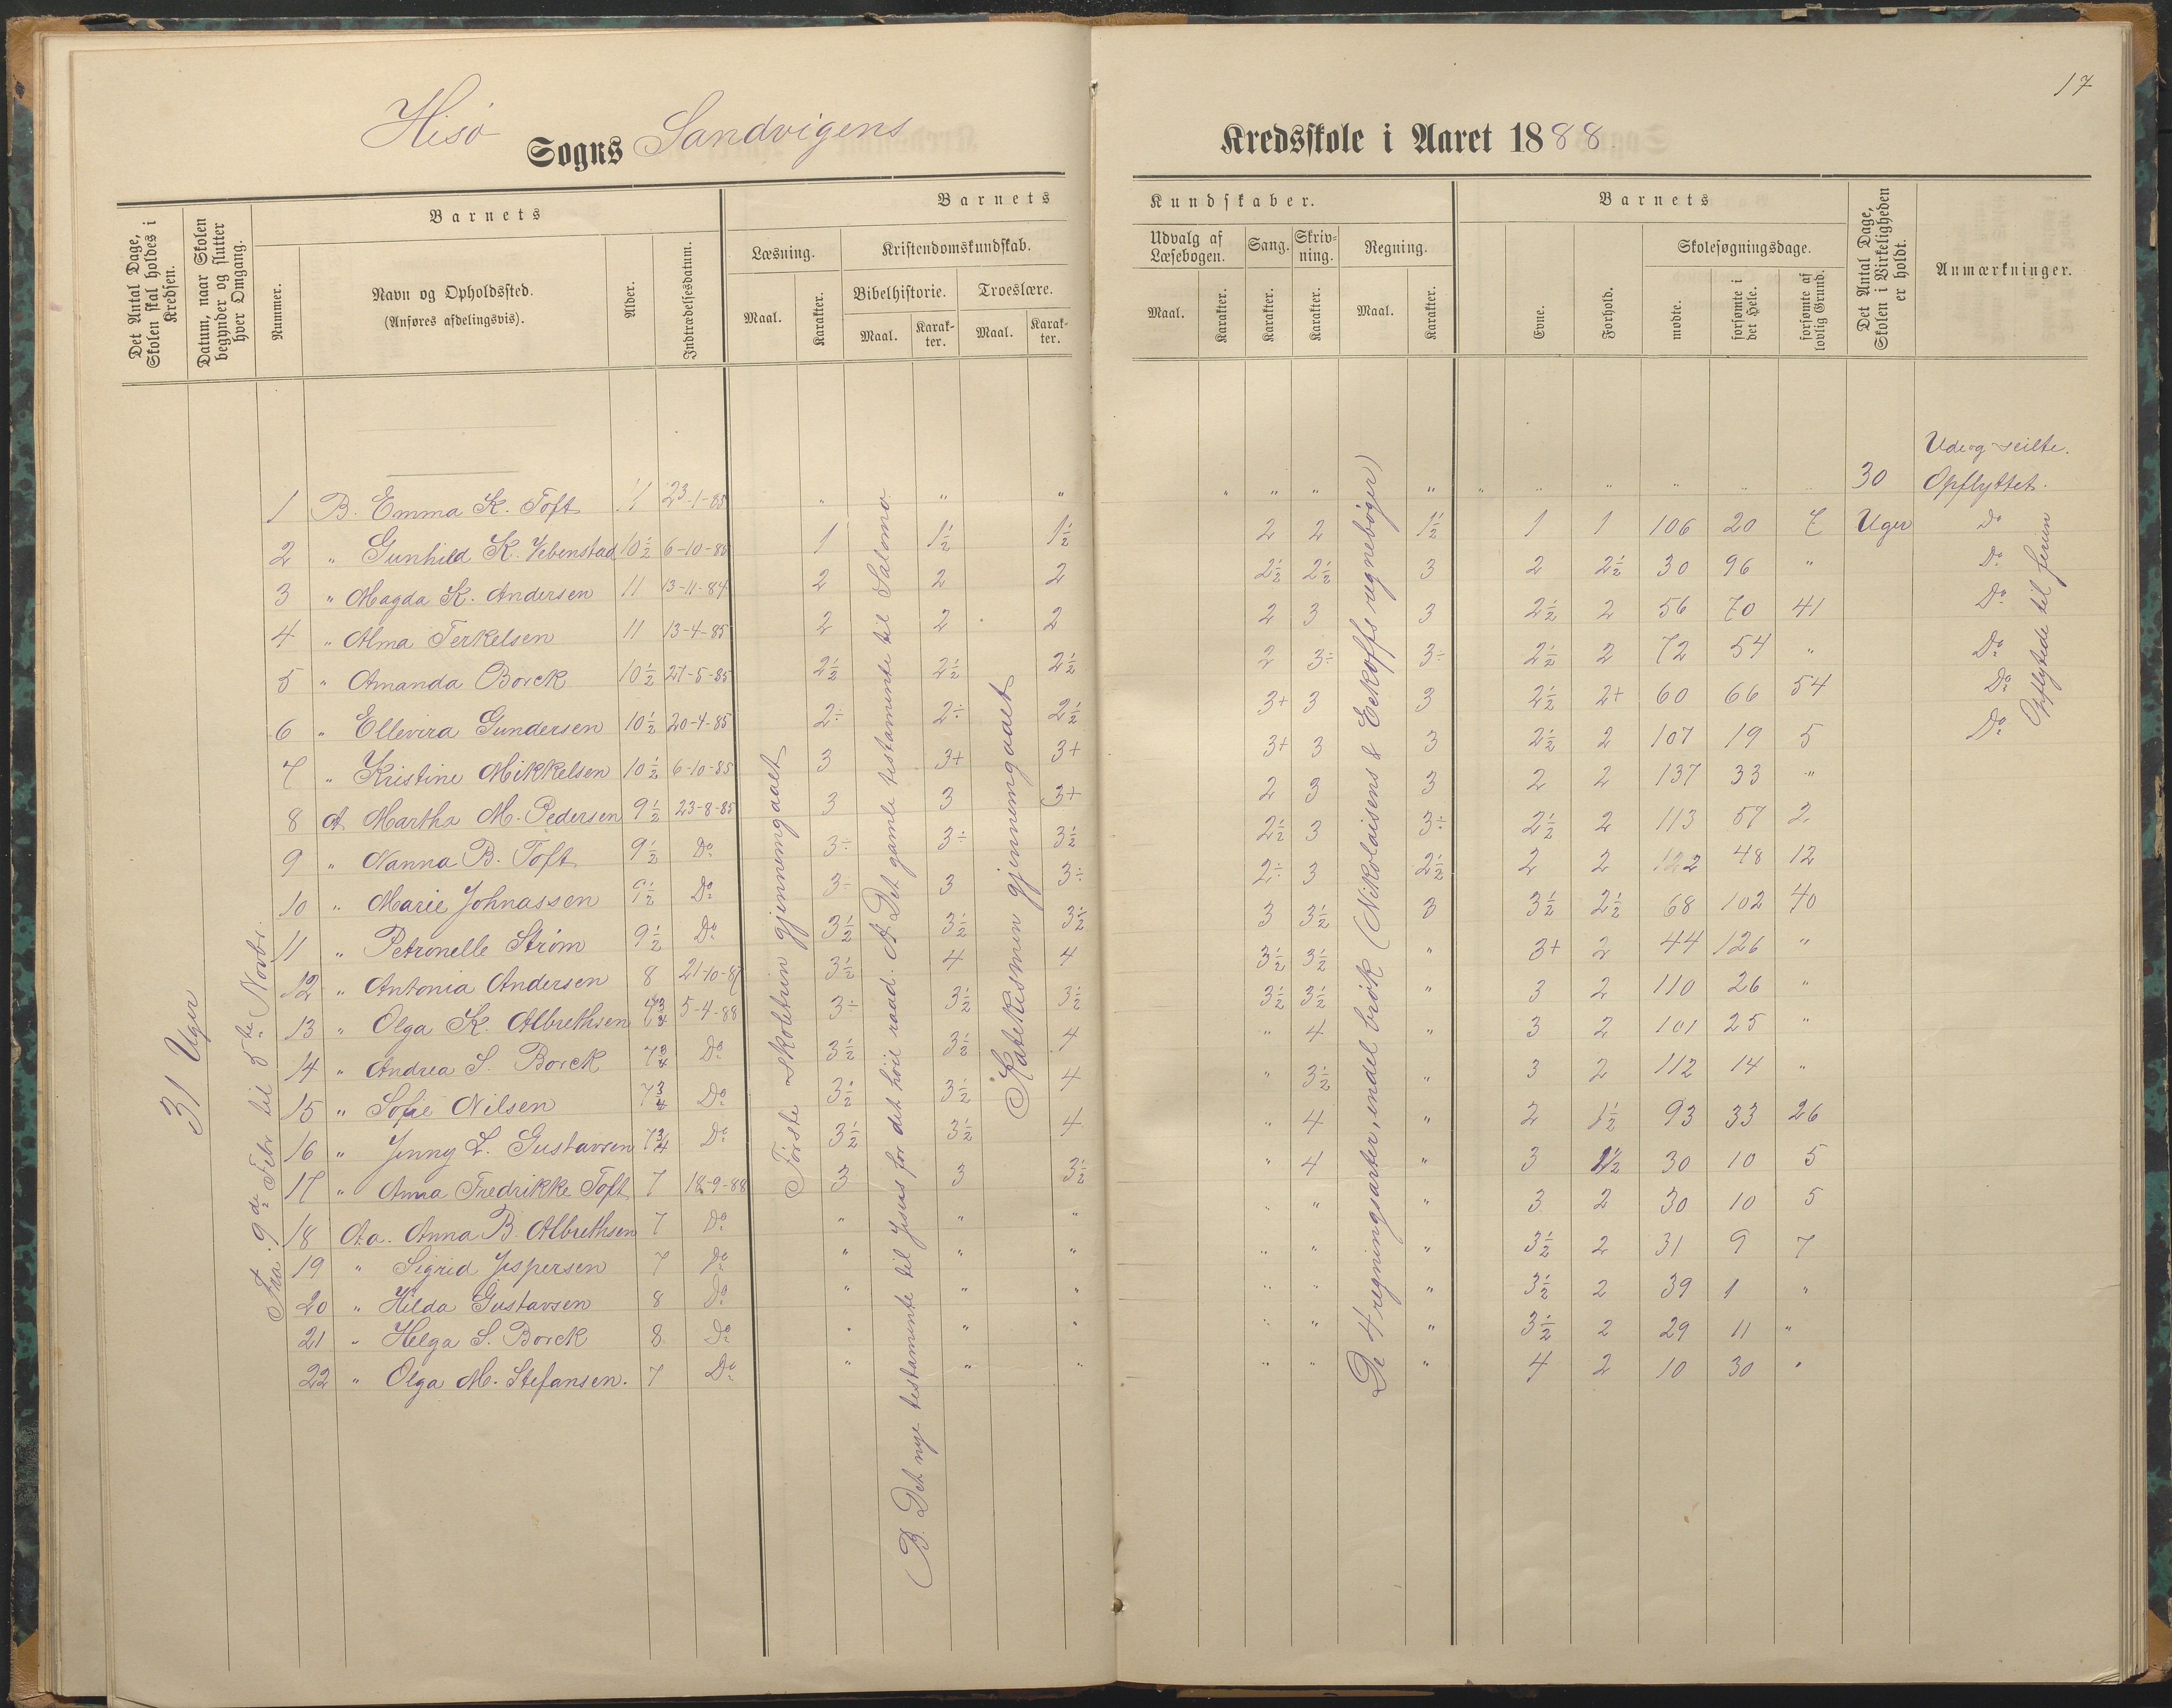 17
Hisø Sogns Sandvigens Kredsskole i Aaret 1888.
Det Antal Dage, Skolen skal holdes i Kredsen.
Datum, naar Skolen begynder og slutter hver Omgang.
Barnets
Nummer.
Navn og Opholdssted.
(Anføres afdelingsvis).
Alder.
Indtrædelsesdatum.
Barnets Kundskaber.
Læsning.
Maal.
Karakter.
Kristendomskundskab.
Bibelhistorie.
Maal.
Karakter.
Troeslære.
Maal.
Karakter.
Udvalg af Læsebogen.
Maal.
Karakter.
Sang.
Karakter.
Skrivning.
Karakter.
Regning.
Maal.
Karakter.
Barnets
Evne.
Forhold.
Skolesøgningsdage.
mødte.
forsømte i det Hele.
forsømte af lovlig Grund.
Det Antal Dage, Skolen i Virkeligheden er holdt.
Anmærkninger.
31 Uger
Fra 9de Febr til 5te Novbr.
Første skoletrin gjennemgaaet
B. Det nye testamente til Jesus for det høie raad. A. Det gamle testamente til Salomo
Katekismen gjennemgaaet
De 4 regningsarter, endel brøk (Nikolaisens & Eekoffs regnebøger)
30 Uger
Opflyttede til ferien
1 B. Emma K. Toft 11 23-1-85 " " " " " " " " " " " " Opflyttet.
2 " Gunhild K. Vebenstad 10½ 6-10-85 1 1½ 1½ 2 2 1½ 1 1 106 20 7 Do
3 " Magda K. Andersen 11 13-11-84 2 2 2 2½ 2½ 3 2 2½ 30 96 " Do
4 " Alma Terkelsen 11 13-4-85 2 2 2 2 3 3 2½ 2 56 70 41 Do
5 " Amanda Borck 10½ 27-5-85 2½ 2½ 2½ 2 3÷ 3÷ 2½ 2 72 54 " Do
6 " Ellevira Gundersen 10½ 20-4-85 2÷ 2÷ 2½ 3+ 3 3 2½ 2+ 60 66 54 Do
7 " Kristine Mikkelsen 10½ 6-10-85 3 3+ 3+ 3+ 3 3 2½ 2 107 19 5 Do
8 A Martha M. Pedersen 9½ 23-8-85 3 3 3+ 2 3 3 2 2 137 33 "
9 " Nanna B. Toft 9½ Do 3÷ 3÷ 3½ 2½ 3 3÷ 2½ 2 113 57 2
10 " Marie Johnassen 9½ Do 3÷ 3 3÷ 2÷ 3 2½ 2 2 122 48 12
11 " Petronelle Strøm 9½ Do 3½ 3½ 3½ 3 3½ 3 3½ 2½ 68 102 40
12 " Antonia Andersen 8 21-10-87 3½ 4 4 3½ 3½ " 3+ 2 44 126 "
13 " Olga K. Albrethsen 7¾ 5-4-88 3÷ 3½ 3½ 3½ 3½ " 3 2 110 26 "
14 " Andrea S. Borck 7¾ Do 3½ 3½ 4 " 4 " 3 2 101 25 "
15 " Sofie Nilsen 7¾ Do 3½ 3½ 4 " 3½ " 3 2 112 14 "
16 " Jenny L. Gustavsen 7¾ Do 3½ 3½ 4 " 4 " 2 1½ 93 33 26
17 " Anna Fredrikke Toft 7 18-9-88 3 3 3½ " 4 " 3 1½ 30 10 5
18 Aa. Anna B. Albrethsen 7 Do " " " " " 3 2 30 10 5
19 " Sigrid Jespersen 7 Do " " " " " " 3½ 2 31 9 7
20 " Hilda Gustavsen 8 Do " " " " " " 3½ 2 39 1 "
21 " Helga S. Borck 8 Do " " " " " " 3½ 2 29 11 "
22 " Olga M. Stefansen. 7 Do " " " " " " 4 2 10 30 "